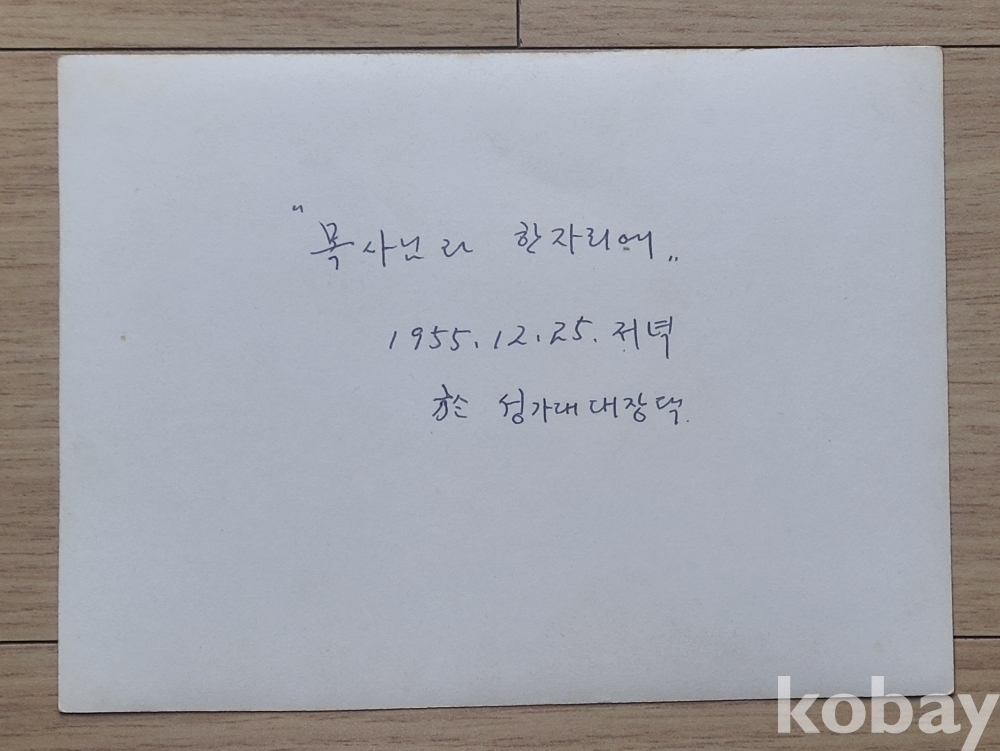 "목사님과 한자리에"
1955.12.25. 저녁
於 성가대대장댁.
kobay